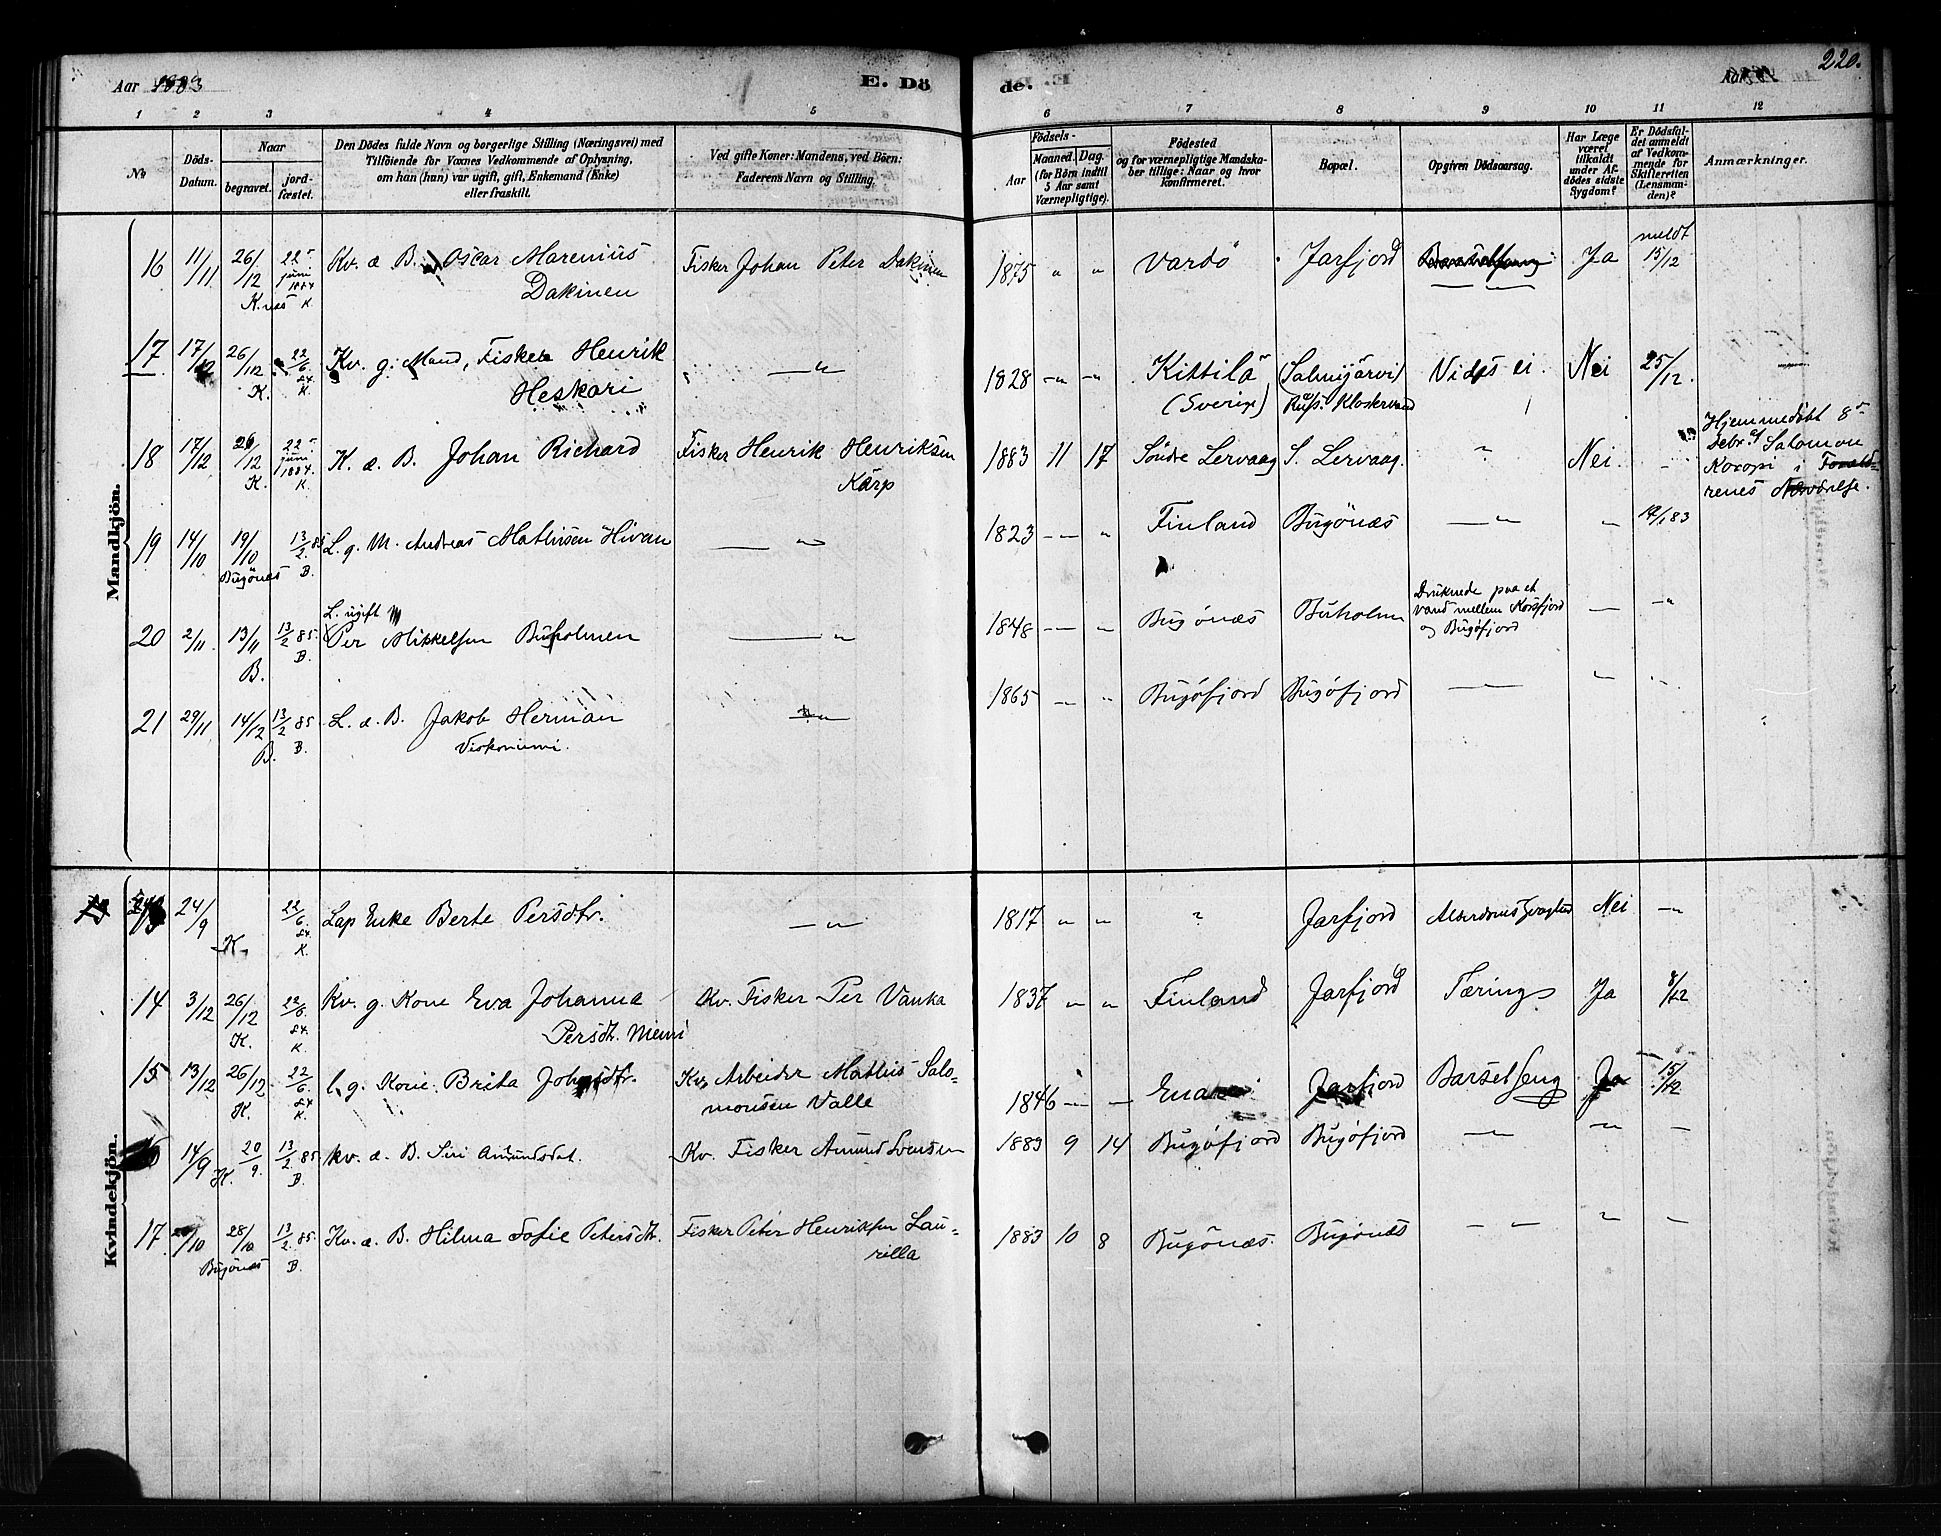 Aar 1883
E. Dö
de.
220.
1 2 3 4 5 6 7 8 9 10 11 12
No
Döds-Datum.
Naar
begravet.
jordfæstet.
Den Dödes fulde Navn og borgerlige Stilling (Næringsvei) med
Tilföiende for Voxnes Vedkommende af Oplysning,
om han (hun) var ugift, gift, Enkemand (Enke)
eller fraskilt.
Ved gifte Koner: Mandens, ved Börn:
Faderens Navn og Stilling.
Födsels-
Aar
Maaned. Dag.
(for Börn indtil
5 Aar samt
Værnepligtige).
Födested
og for værnepligtige Mandska-
ber tillige: Naar og hvor
konfirmeret.
Bopæl.
Opgiven Dödsaarsag.
Har Læge
været
tilkaldt
under Af-
dödes sidste
Sygdom?
Er Dödsfal-
det anmeldt
af Vedkom-
mende for
Skifteretten
(Lensman-
den)?
Anmærkninger.
Mandkjön.
16 11/11 26/12 K.nes 22 juni 1884 K. Kv. æ. B. Oscar Marenius
Dakinen
Fisker Johan Peter Dakinen 1875 " " Vardö Jarfjord Ja meldt 15/12
17 17/12 26/12 K. 22/6 84 K. Kv. g. Mand, Fisker Henrik
Heskari
— " 1828 — " — " Kittilä
(Sverige)
(Salmijärvi)
Russ. Klostervand
Vides ei. Nei 25/12.
18 17/12 26/12 K. 22 juni 1884. K. K. æ. B. Johan Richard
Fisker Henrik Henriksen
Kärp
1883 11 17 Söndre Lervaag S. Lervaag. " Nei. —
Hjemmedöbt 8de
Debr. af Salomon
Koropi i Foræld-
renes Nærværelse.
19 14/10 19/10 Bugönæs 13/2 85 B. L. g. M. Andreas Mathisen Hivan — " 1823 — " Finland Bugönæs — " " 14/1 83
20 2/11 13/11 B. 13/2 85. B. L. ugift M
Per Mikkelsen Buholmen — " 1848 — " Bugönæs Buholm
Druknede paa et
Vand mellem Korsfjord
og Bugöfjord
— — "
21 29/11 14/12 B. 13/2 85 B. L. æ. B. Jakob Herman
— " 1865 — " Bugöfjord Bugöfjord — "
Kvindekjön.
24/9 K. 22/6 84. K. Lap Enke Berte Persdtr. — " 1817 " " " Jarfjord Nei — "
14 3/12 26/12 K. 22/6. 84. K. Kv. g. Kone Eva Johanna
Persdtr. Niemi
Kv. Fisker Per Vanka 1837 " " Finland Jarfjord Tæring Ja 8/12
15 13/12 26/12 K. 22/6. 84 K. L. g. Kone Brita
Kv. Arbeider Mathis Salo-
monsen Valle
1846 — — Jarfjord Barselseng Ja 15/12
14/9 K. 20/9. 13/2 85 B. Kv. æ. B. Siri Amundsdat. Kv. Fisker Amund Svensen 1883 9 14 Bugöfjord Bugöfjord — " " —
17. 28/10 Bugönæs 13/2. 85. B. Kv. æ. B. Hilma Sofie Petersdtr. Fisker Peter Henriksen Lau-
rilla
1883 10 8 Bugönæs. Bugönæs — " " —